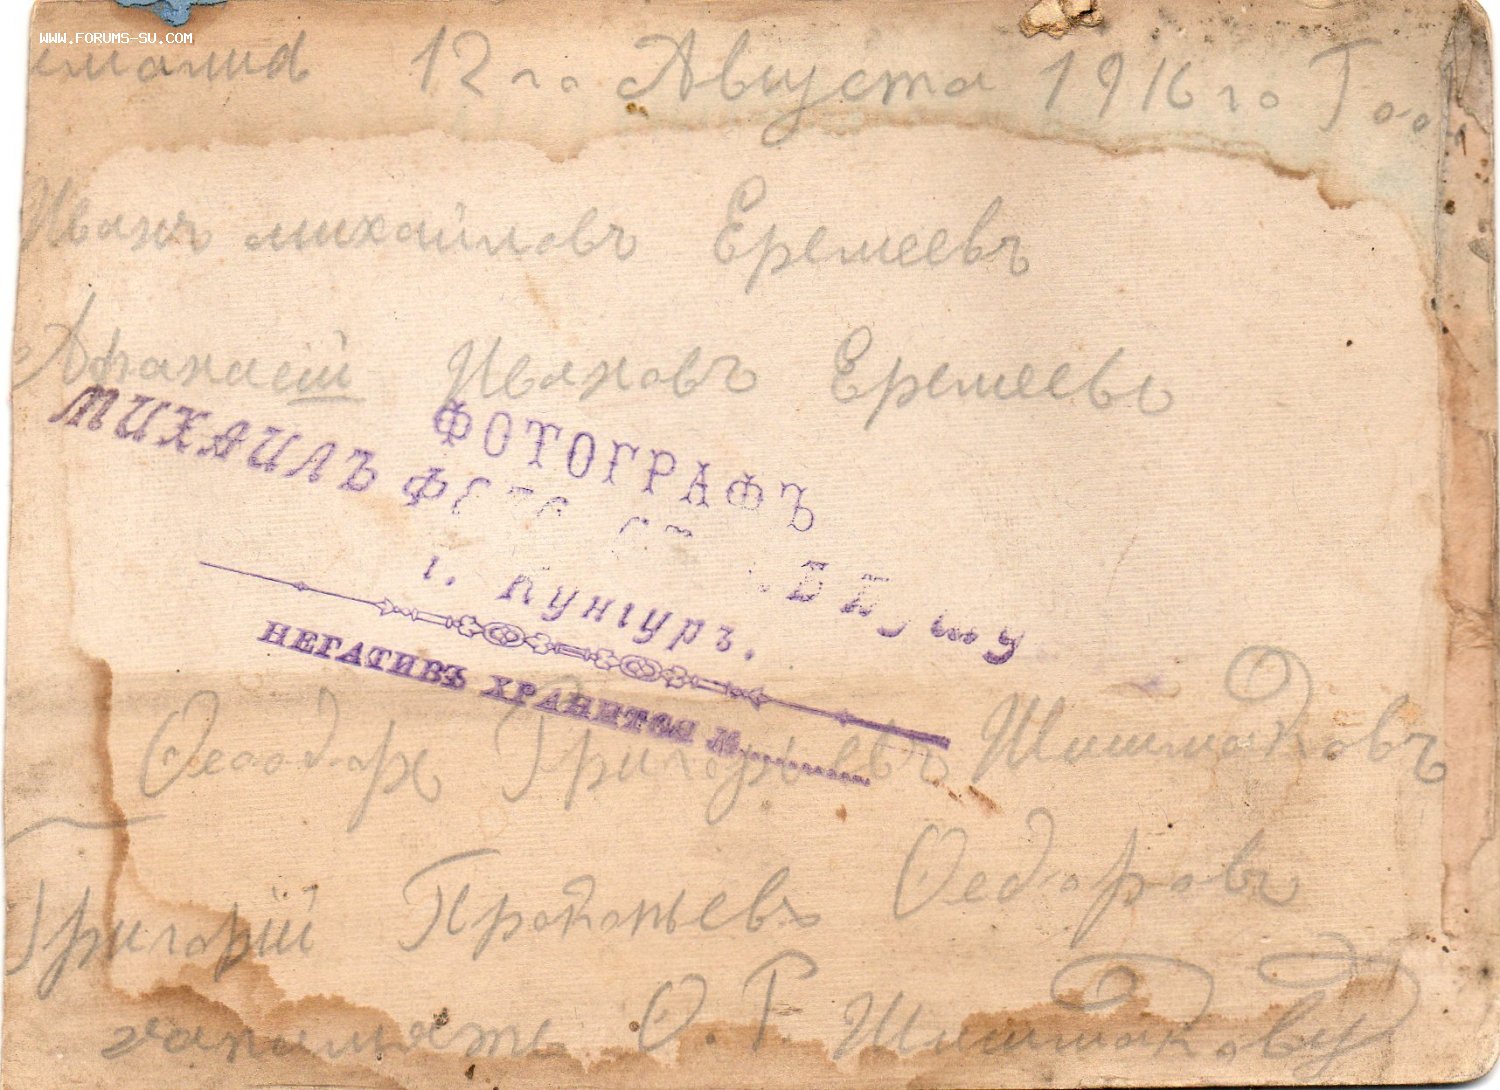 WWW.FORUMS-SU.COM
12 го Августа 1916 го
Иванъ михайловъ Еремеевъ
Афанасий Ивановъ Еремеевъ
ФОТОГРАФЪ
МИХАИЛЪ
г. Кунгуръ.
НЕГАТИВЪ ХРАНИТСЯ №
Ѳеодоръ Григорьевъ Шишмаковъ
Григорій Прокопьевъ Ѳедоровъ
Ѳ. Г. Шишмакову